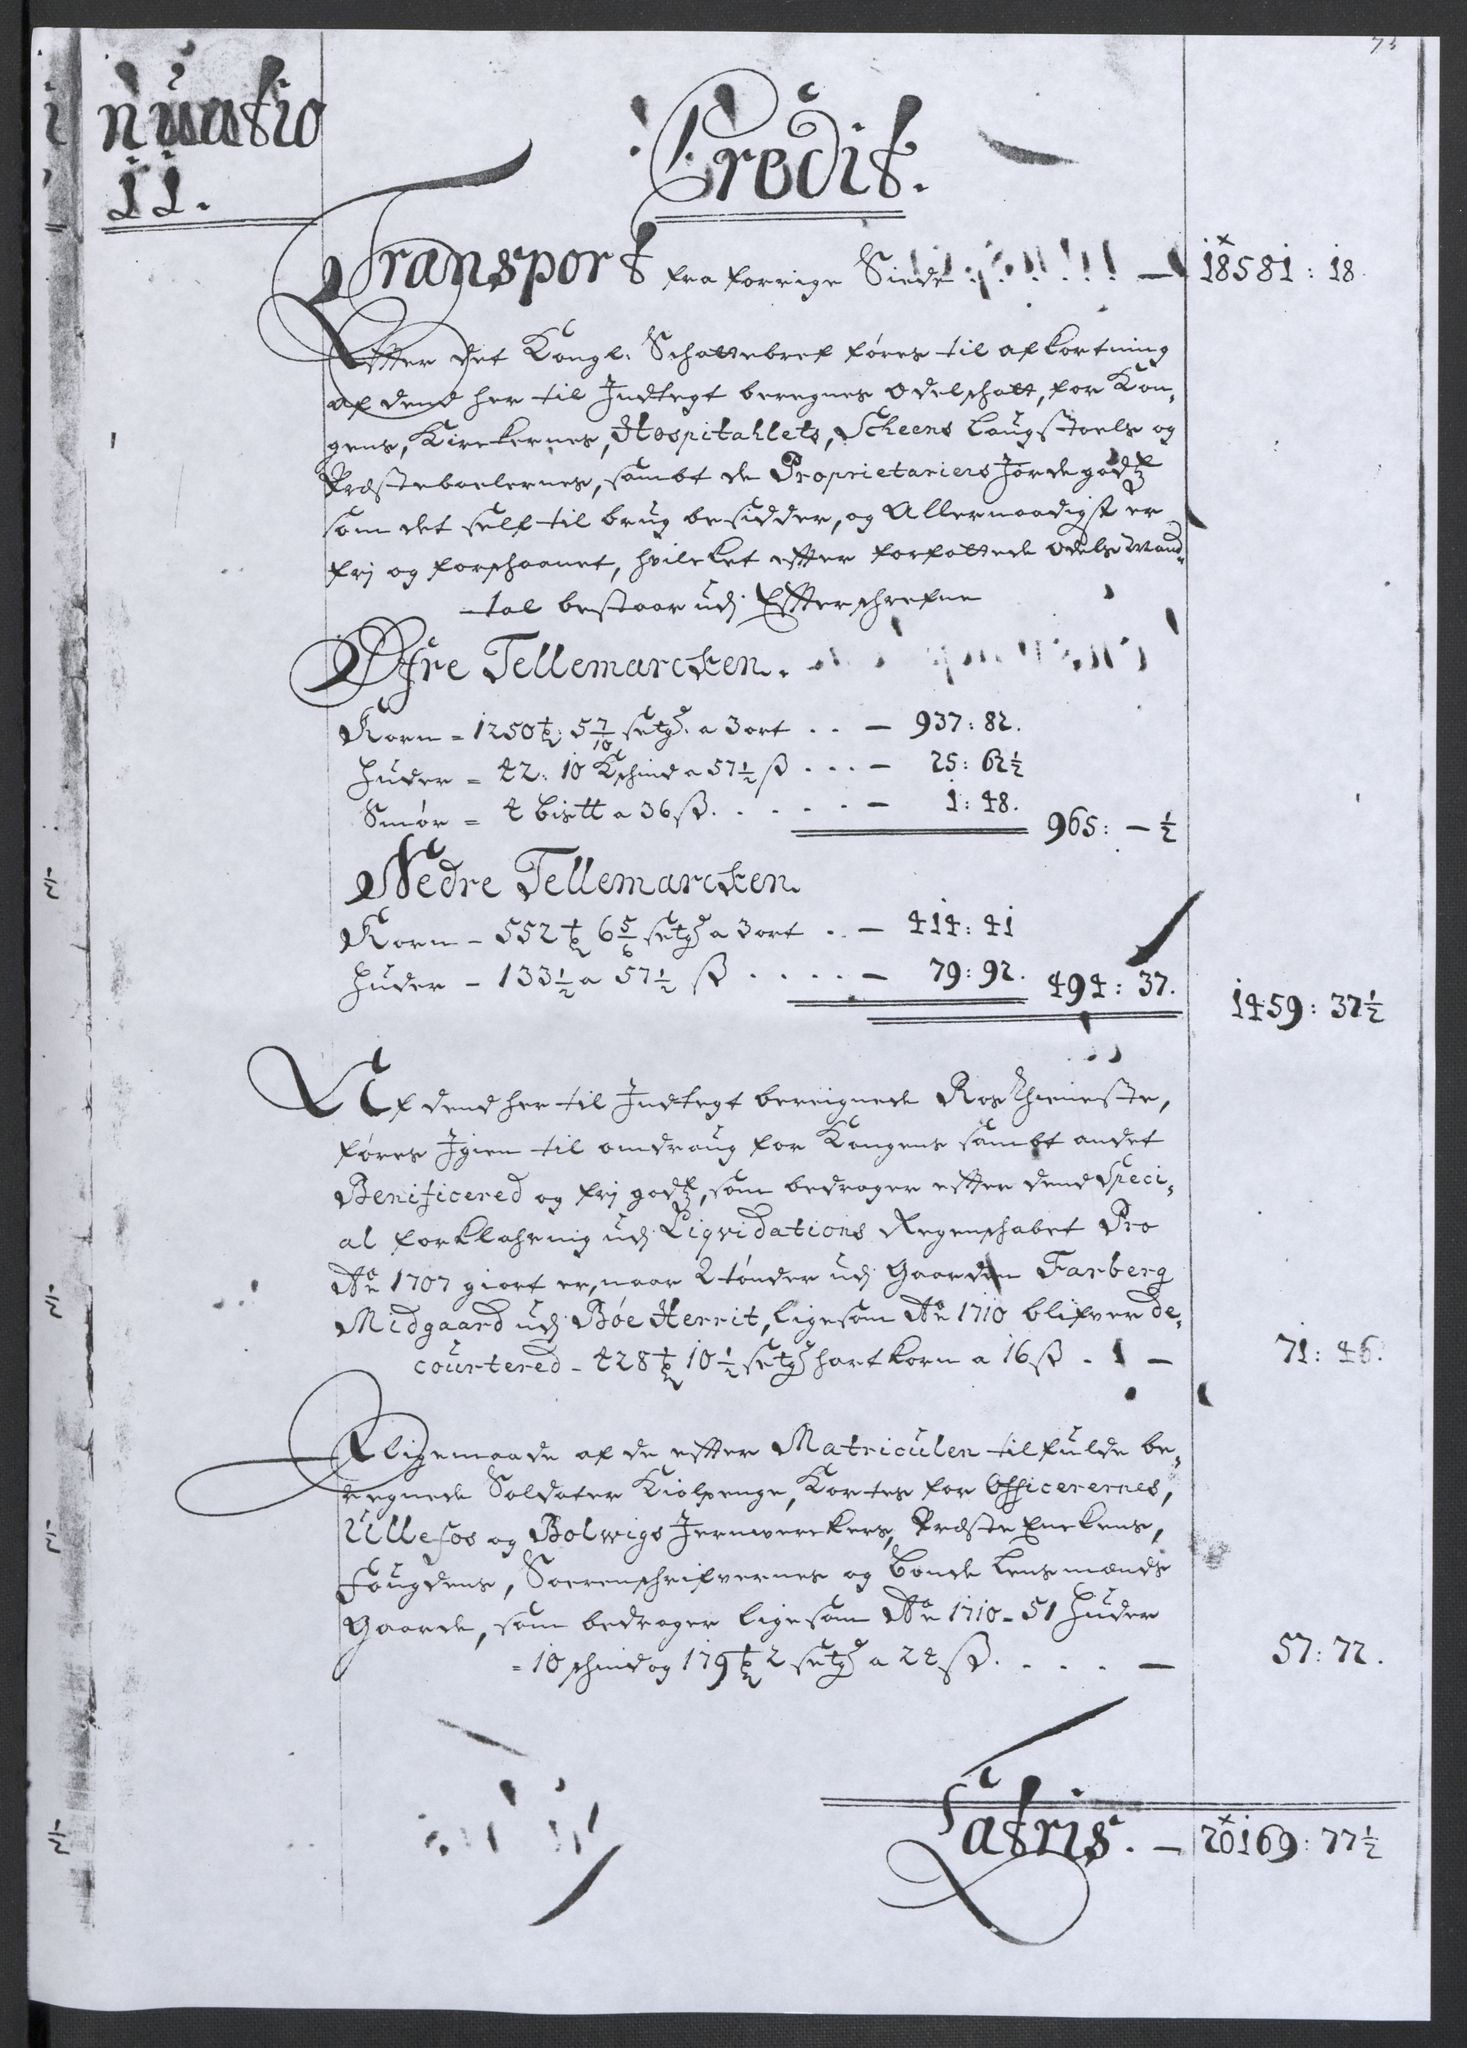 nuatio
11.
Credit.
Transport fra forrige Siide — 18581: 18.
Effter det Kongl. Schattebref føres til afkortning
af dend her til Indtegt beregnes Odelschatt, for Kon-
gens, Kirckernes, Hospitahlets, Scheens Laugstoels og
Præsteboelernes, sambt de Proprietariers Jordegodtz
som det self til brug besidder, og Allernaadigst er
frj og forschaanet, hvilcket effter forfattede Odels Mand-
tal bestaar udj Effterschrefne
Øfre Tellemarcken.
Korn = 1250 t. 5 7/10 setg. a 3 ort . . — 937: 82.
Huder = 42: 10 Kschind a 57½ ß . . . — 25: 62½
Smør = 4 bisltt a 36 ß. . . . . . — 1: 48. 965: — ½
Nedre Tellemarcken
Korn — 552 t 6 5/6 setg a 3 ort . . — 414: 41
Huder — 133½ a 57½ ß . . . . . — 79: 92. 494: 37.
1459: 37½
Af dend her til Indtegt bereignede Rosthieneste,
føres Igien til omdraug for Kongens sambt andet
Benificered og frj godtz, som bedrager effter dend Speci-
al forklahring udj Liqvidations Regenschabet Pro
Ao 1707 giort er, naar 2 tønder udj Gaarden Farberg
Midgaard udj Bøe Herrit, ligesom Ao 1710 blifver de-
courtered — 428 t 10½ setg hartkorn a 16 ß . . — 71: 46.
Lligemaade af de effter Matriculen tilfulde be-
regnede Soldater Kiolpenge, Kortes for Officerernes,
Ullefos og Bolwigs Jernverckers, Præste Enckens,
Fougdens, Sorenschrifvernes og Bonde Lensmænds
Gaarde, som bedrager ligesom Ao 1710 — 51 Huder
= 10 schind og 179 t 2 setg a 24 ß. . . . . — 57: 72.
Latris. — 20169: 77½